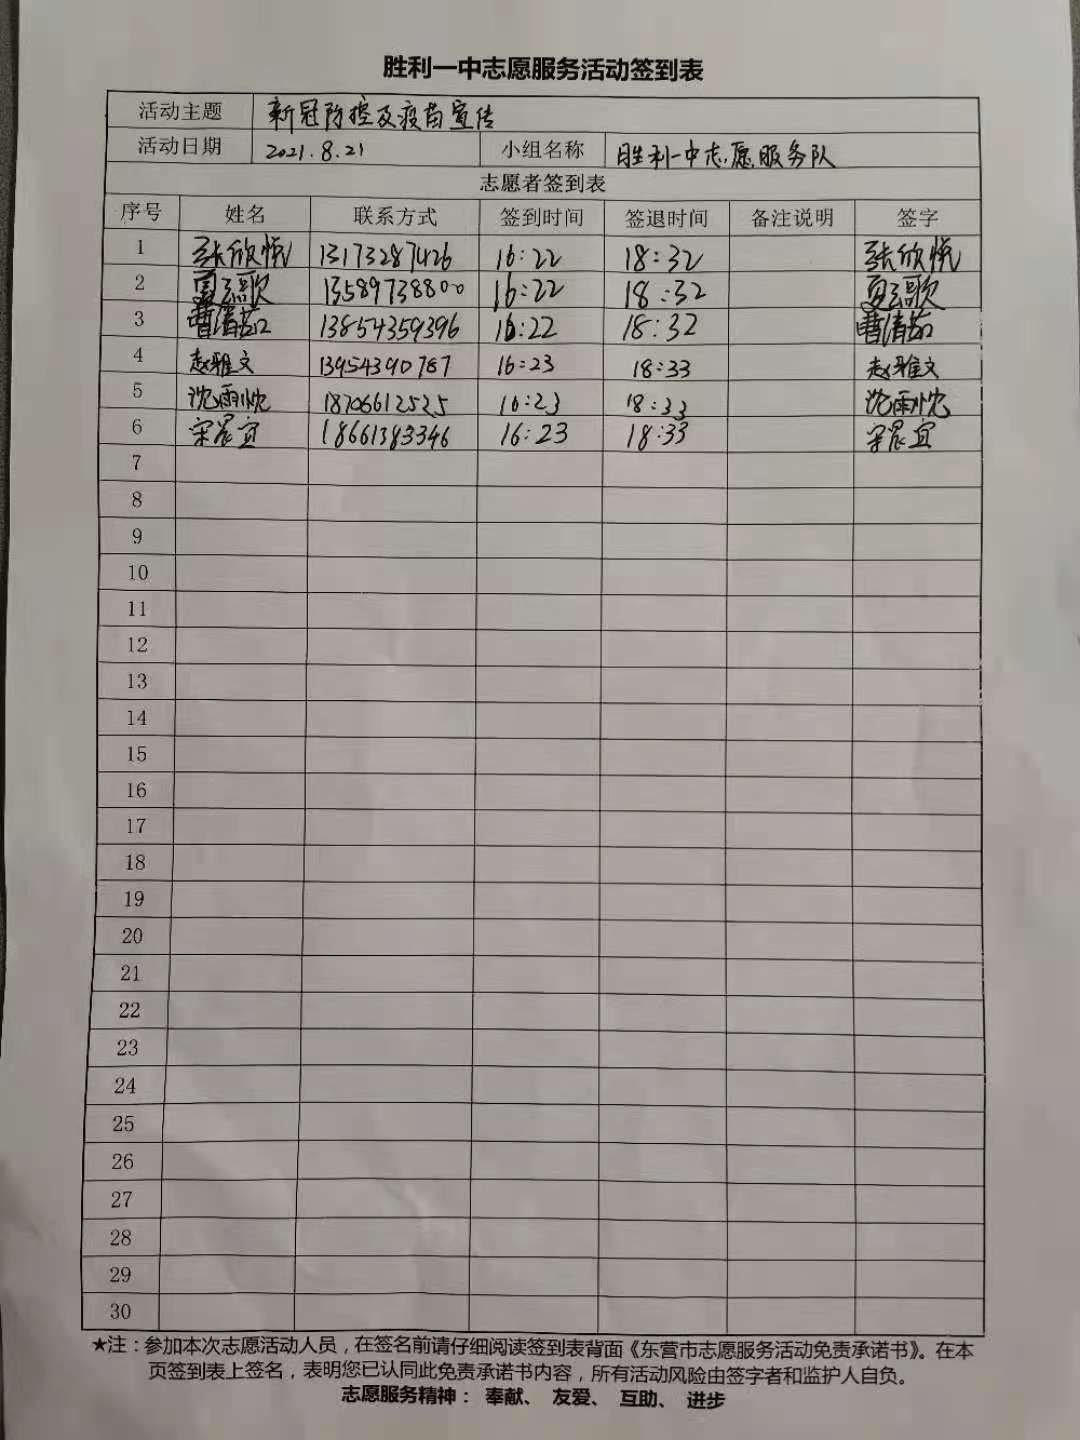 胜利一中志愿服务活动签到表
活动主题 新冠防控及疫苗宣传
活动日期 2021.8.21 小组名称 胜利一中志愿服务队
志愿者签到表
序号 姓名 联系方式 签到时间 签退时间 备注说明 签字
1 张欣悦 13173287426 16:22 18:32 张欣悦
2 13589738800 16:22 18:32
3 曹清茹 13854359396 16:22 18:32 曹清茹
4 赵雅文 13954390787 16:23 18:33 赵雅文
5 沈雨忱 18706612525 16:23 18:33 沈雨忱
6 宋晨宜 18661383346 16:23 18:33 宋晨宜
7
8
9
10
11
12
13
14
15
16
17
18
19
20
21
22
23
24
25
26
27
28
29
30
★注：参加本次志愿活动人员，在签名前请仔细阅读签到表背面《东营市志愿服务活动免责承诺书》。在本
页签到表上签名，表明您已认同此免责承诺书内容，所有活动风险由签字者和监护人自负。
志愿服务精神： 奉献、 友爱、 互助、 进步